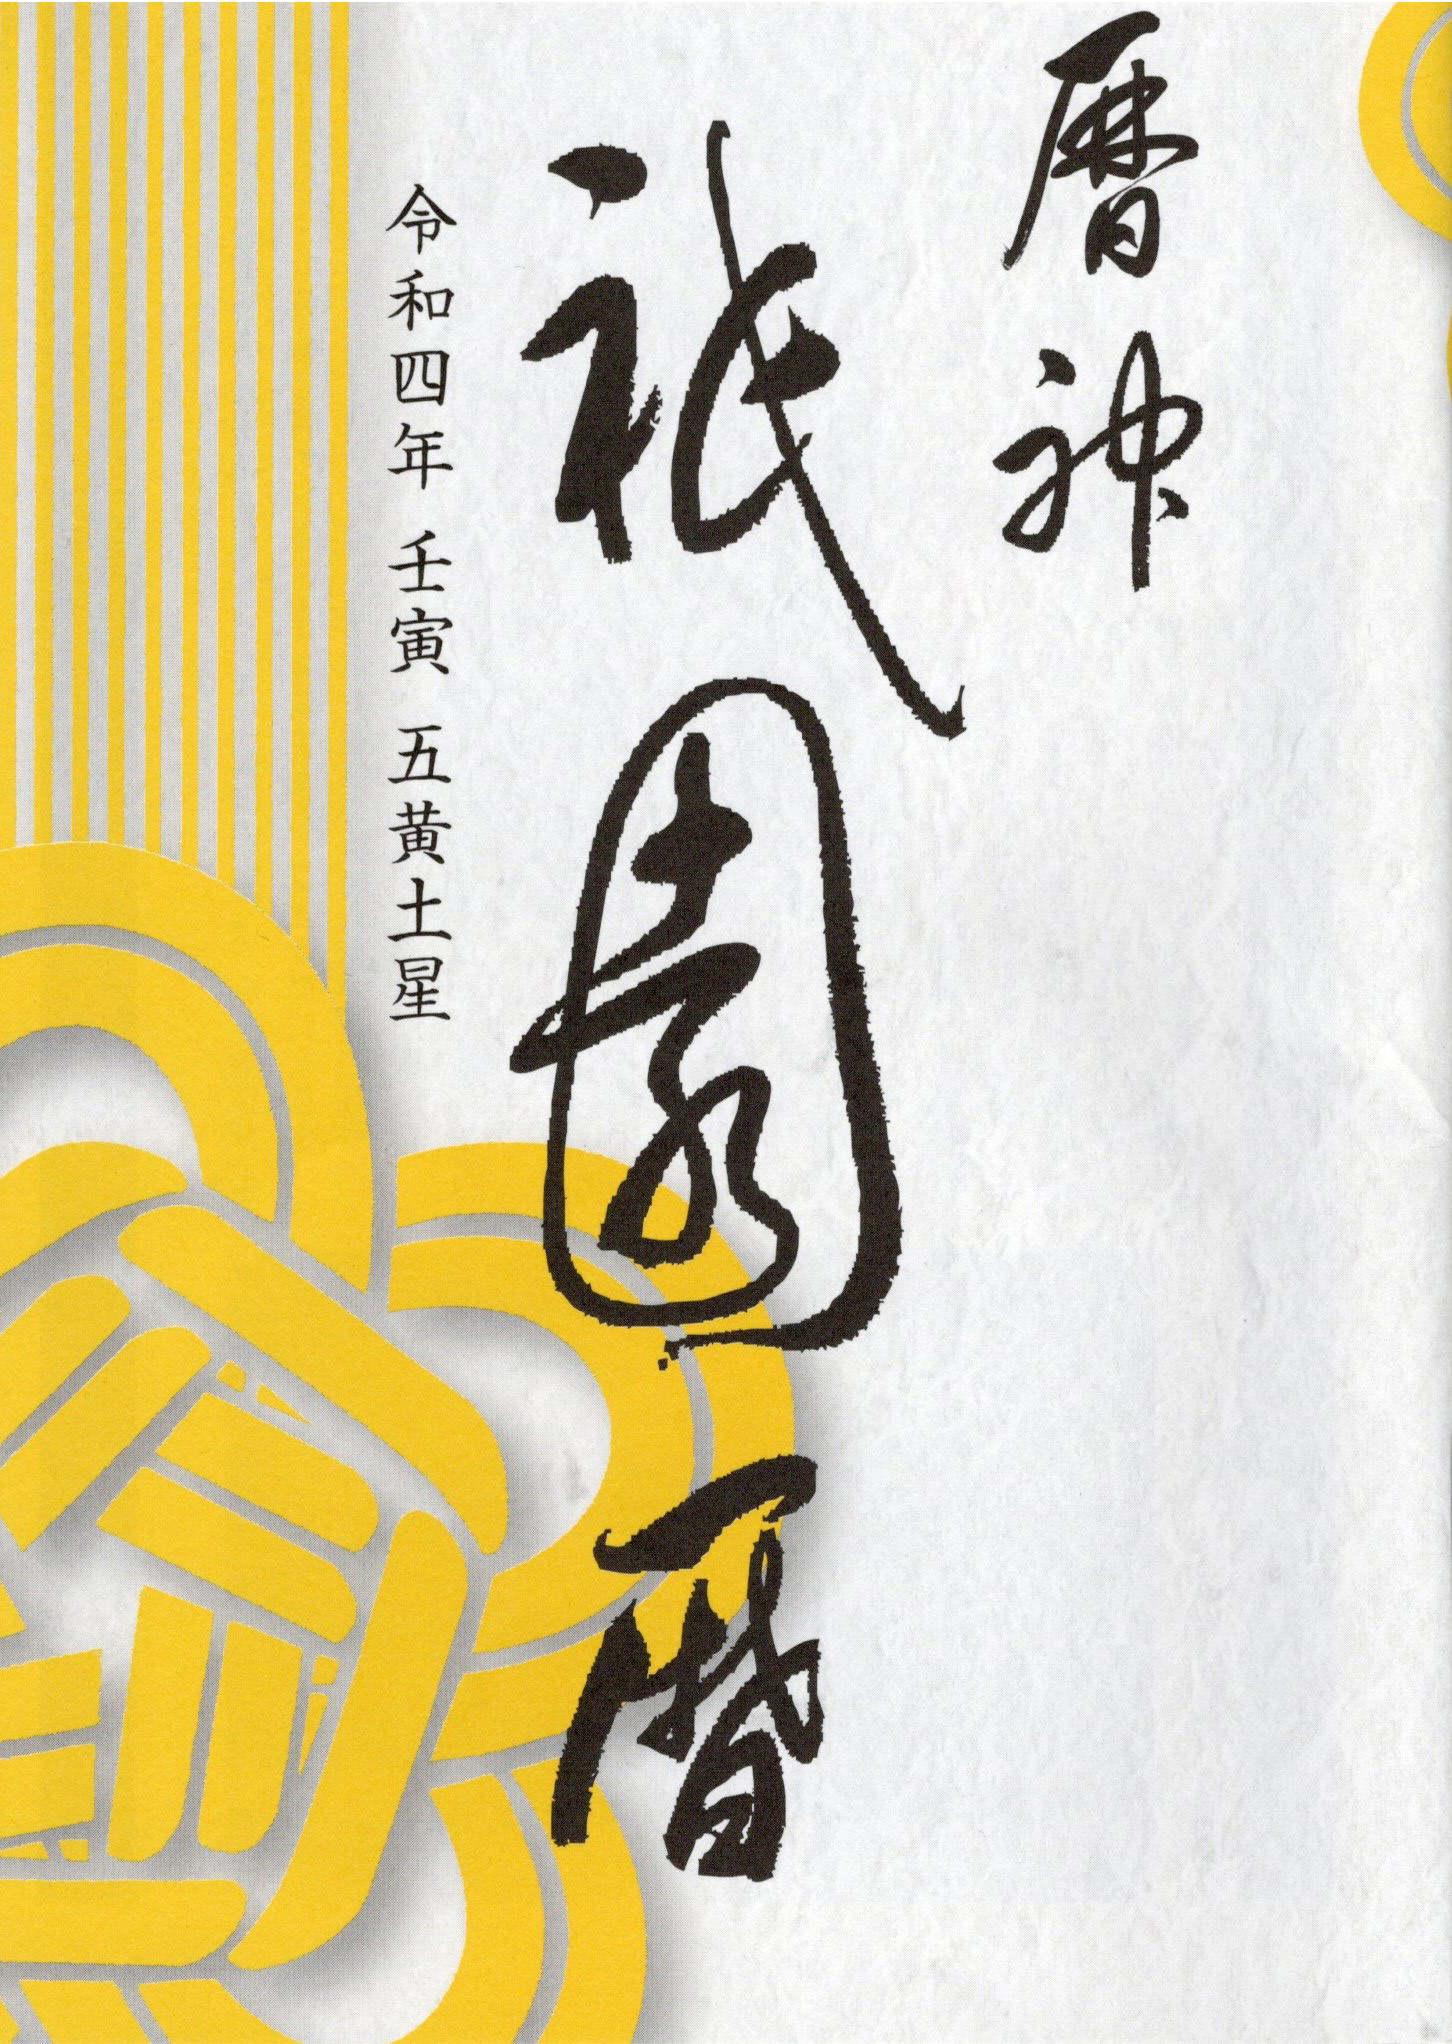 暦神
祇園暦
令和四年 壬寅 五黄土星